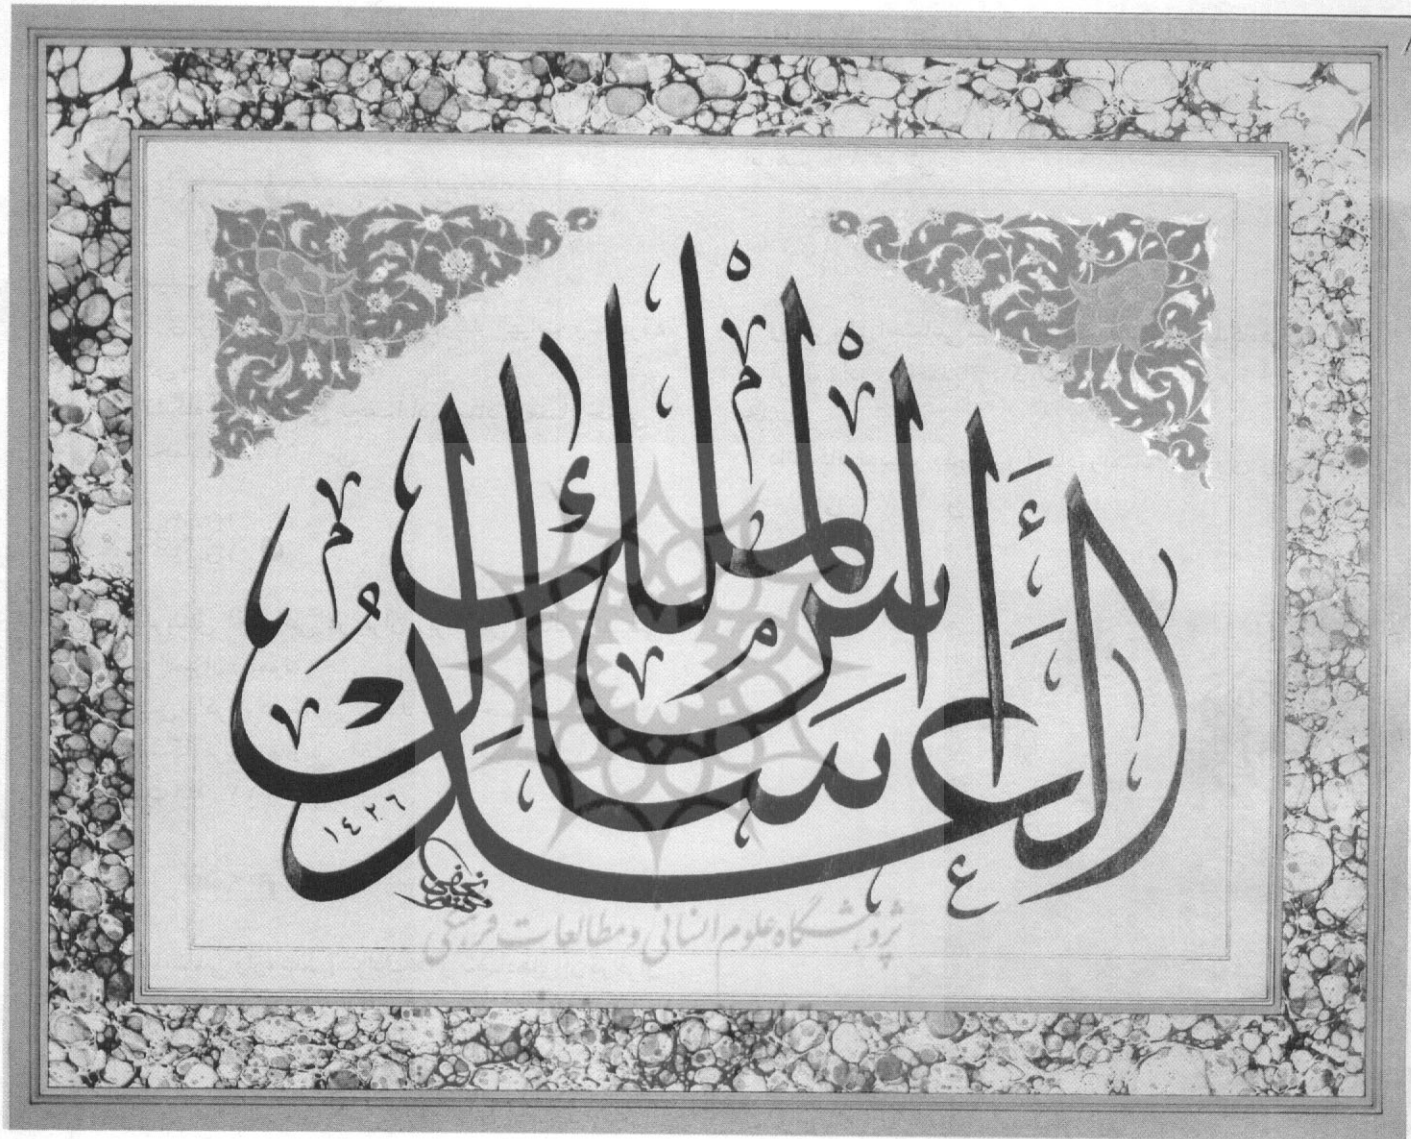 العدل أساس الملك
١٤٢٦
پژوهشگاه علوم انسانی و مطالعات فرهنگی